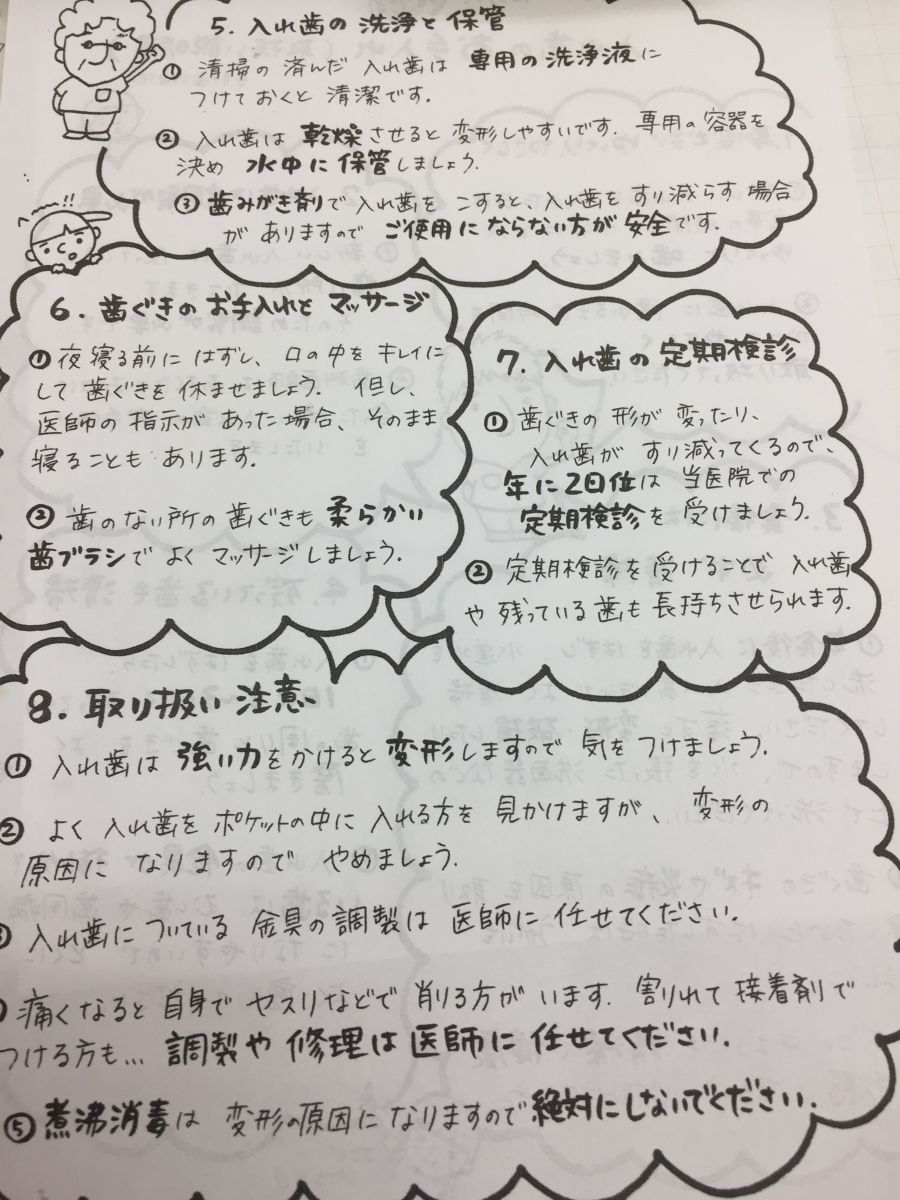 5. 入れ歯の洗浄と保管
① 清掃の済んだ入れ歯は専用の洗浄液に
つけておくと清潔です.
② 入れ歯は乾燥させると変形しやすいです. 専用の容器を
決め水中に保管しましょう.
③ 歯みがき剤で入れ歯をこすると、入れ歯をすり減らす場合
がありますのでご使用にならない方が安全です.
6. 歯ぐきのお手入れとマッサージ
① 夜寝る前にはずし、口の中をキレイに
して歯ぐきを休ませましょう. 但し、
医師の指示があった場合、そのまま
寝ることもあります.
② 歯のない所の歯ぐきも柔らかい
歯ブラシでよくマッサージしましょう.
7. 入れ歯の定期検診
① 歯ぐきの形が変ったり、
入れ歯がすり減ってくるので、
年に2回位は当医院での
定期検診を受けましょう.
② 定期検診を受けることで入れ歯
や残っている歯も長持ちさせられます.
8. 取り扱い注意
① 入れ歯は強い力をかけると変形しますので気をつけましょう.
② よく入れ歯をポケットの中に入れる方を見かけますが、変形の
原因になりますのでやめましょう.
入れ歯についている金具の調製は医師に任せてください.
痛くなると自身でヤスリなどで削りる方がいます. 割りれて接着剤で
つける方も... 調製や修理は医師に任せてください.
⑤ 煮沸消毒は変形の原因になりますので絶対にしないでください.